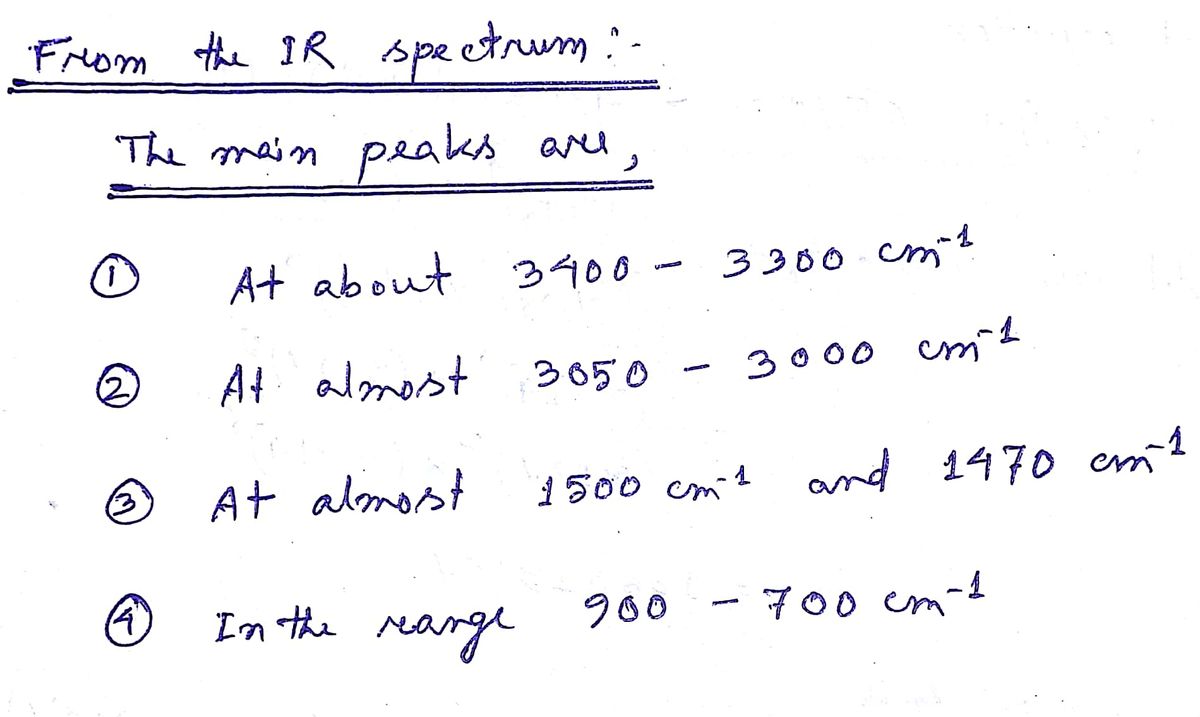 From the IR spectrum :-
The main peaks are,
① At about 3400 - 3300 cm⁻¹
② At almost 3050 - 3000 cm⁻¹
③ At almost 1500 cm⁻¹ and 1470 cm⁻¹
④ In the range 900 - 700 cm⁻¹